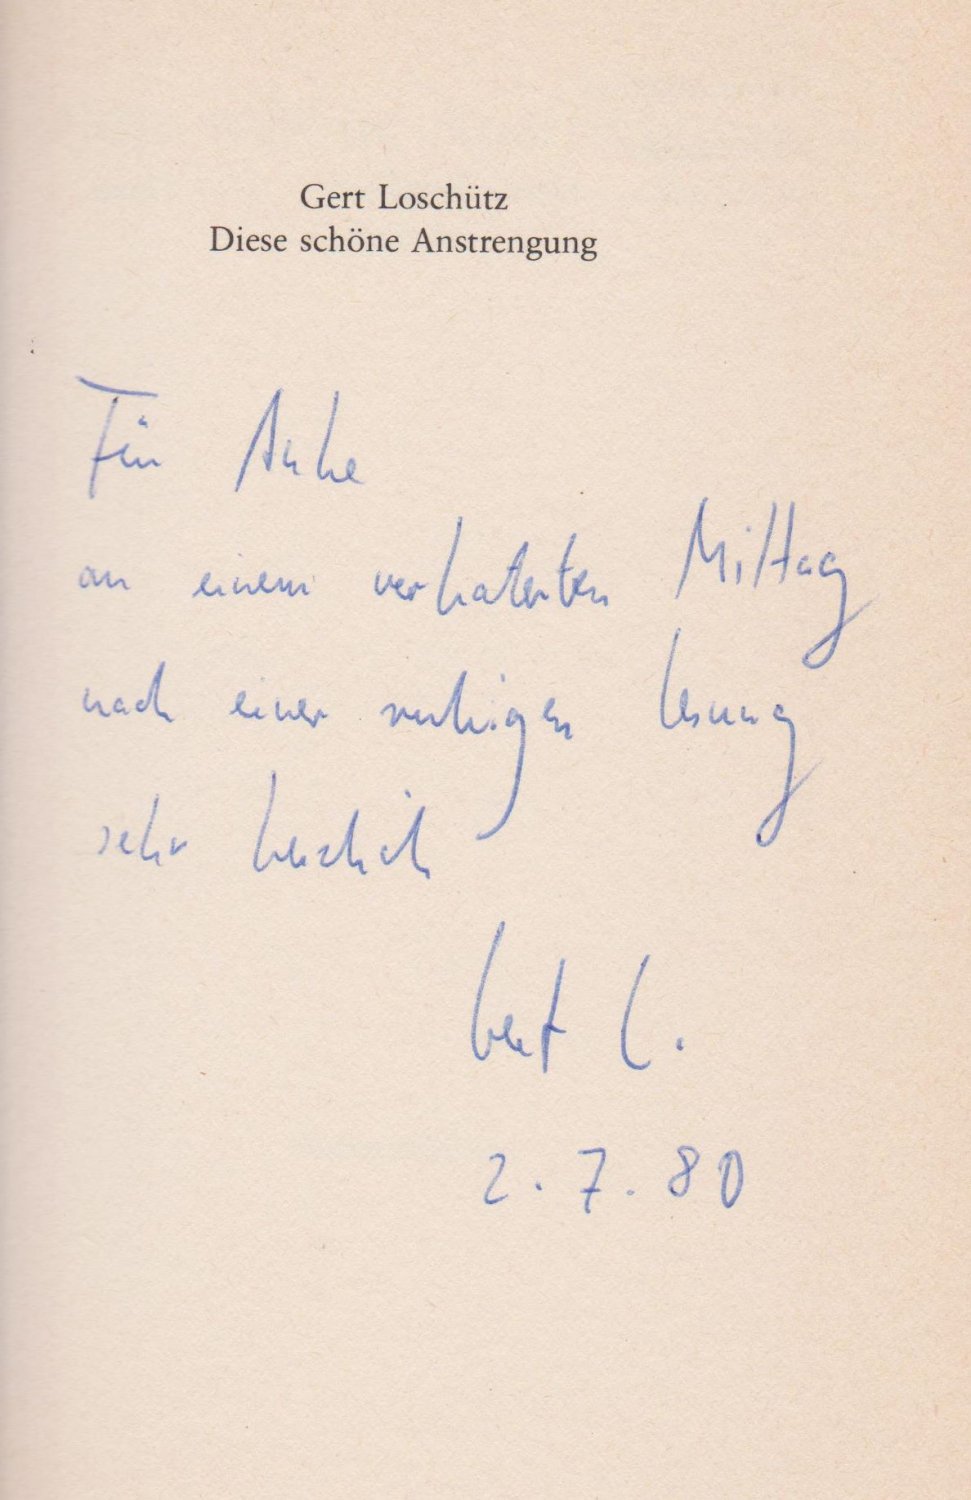 Gert Loschütz
Diese schöne Anstrengung
Für Anke
an einem verkaterten Mittag
nach einer ruhigen Lesung
sehr herzlich
Gert L.
2.7.80